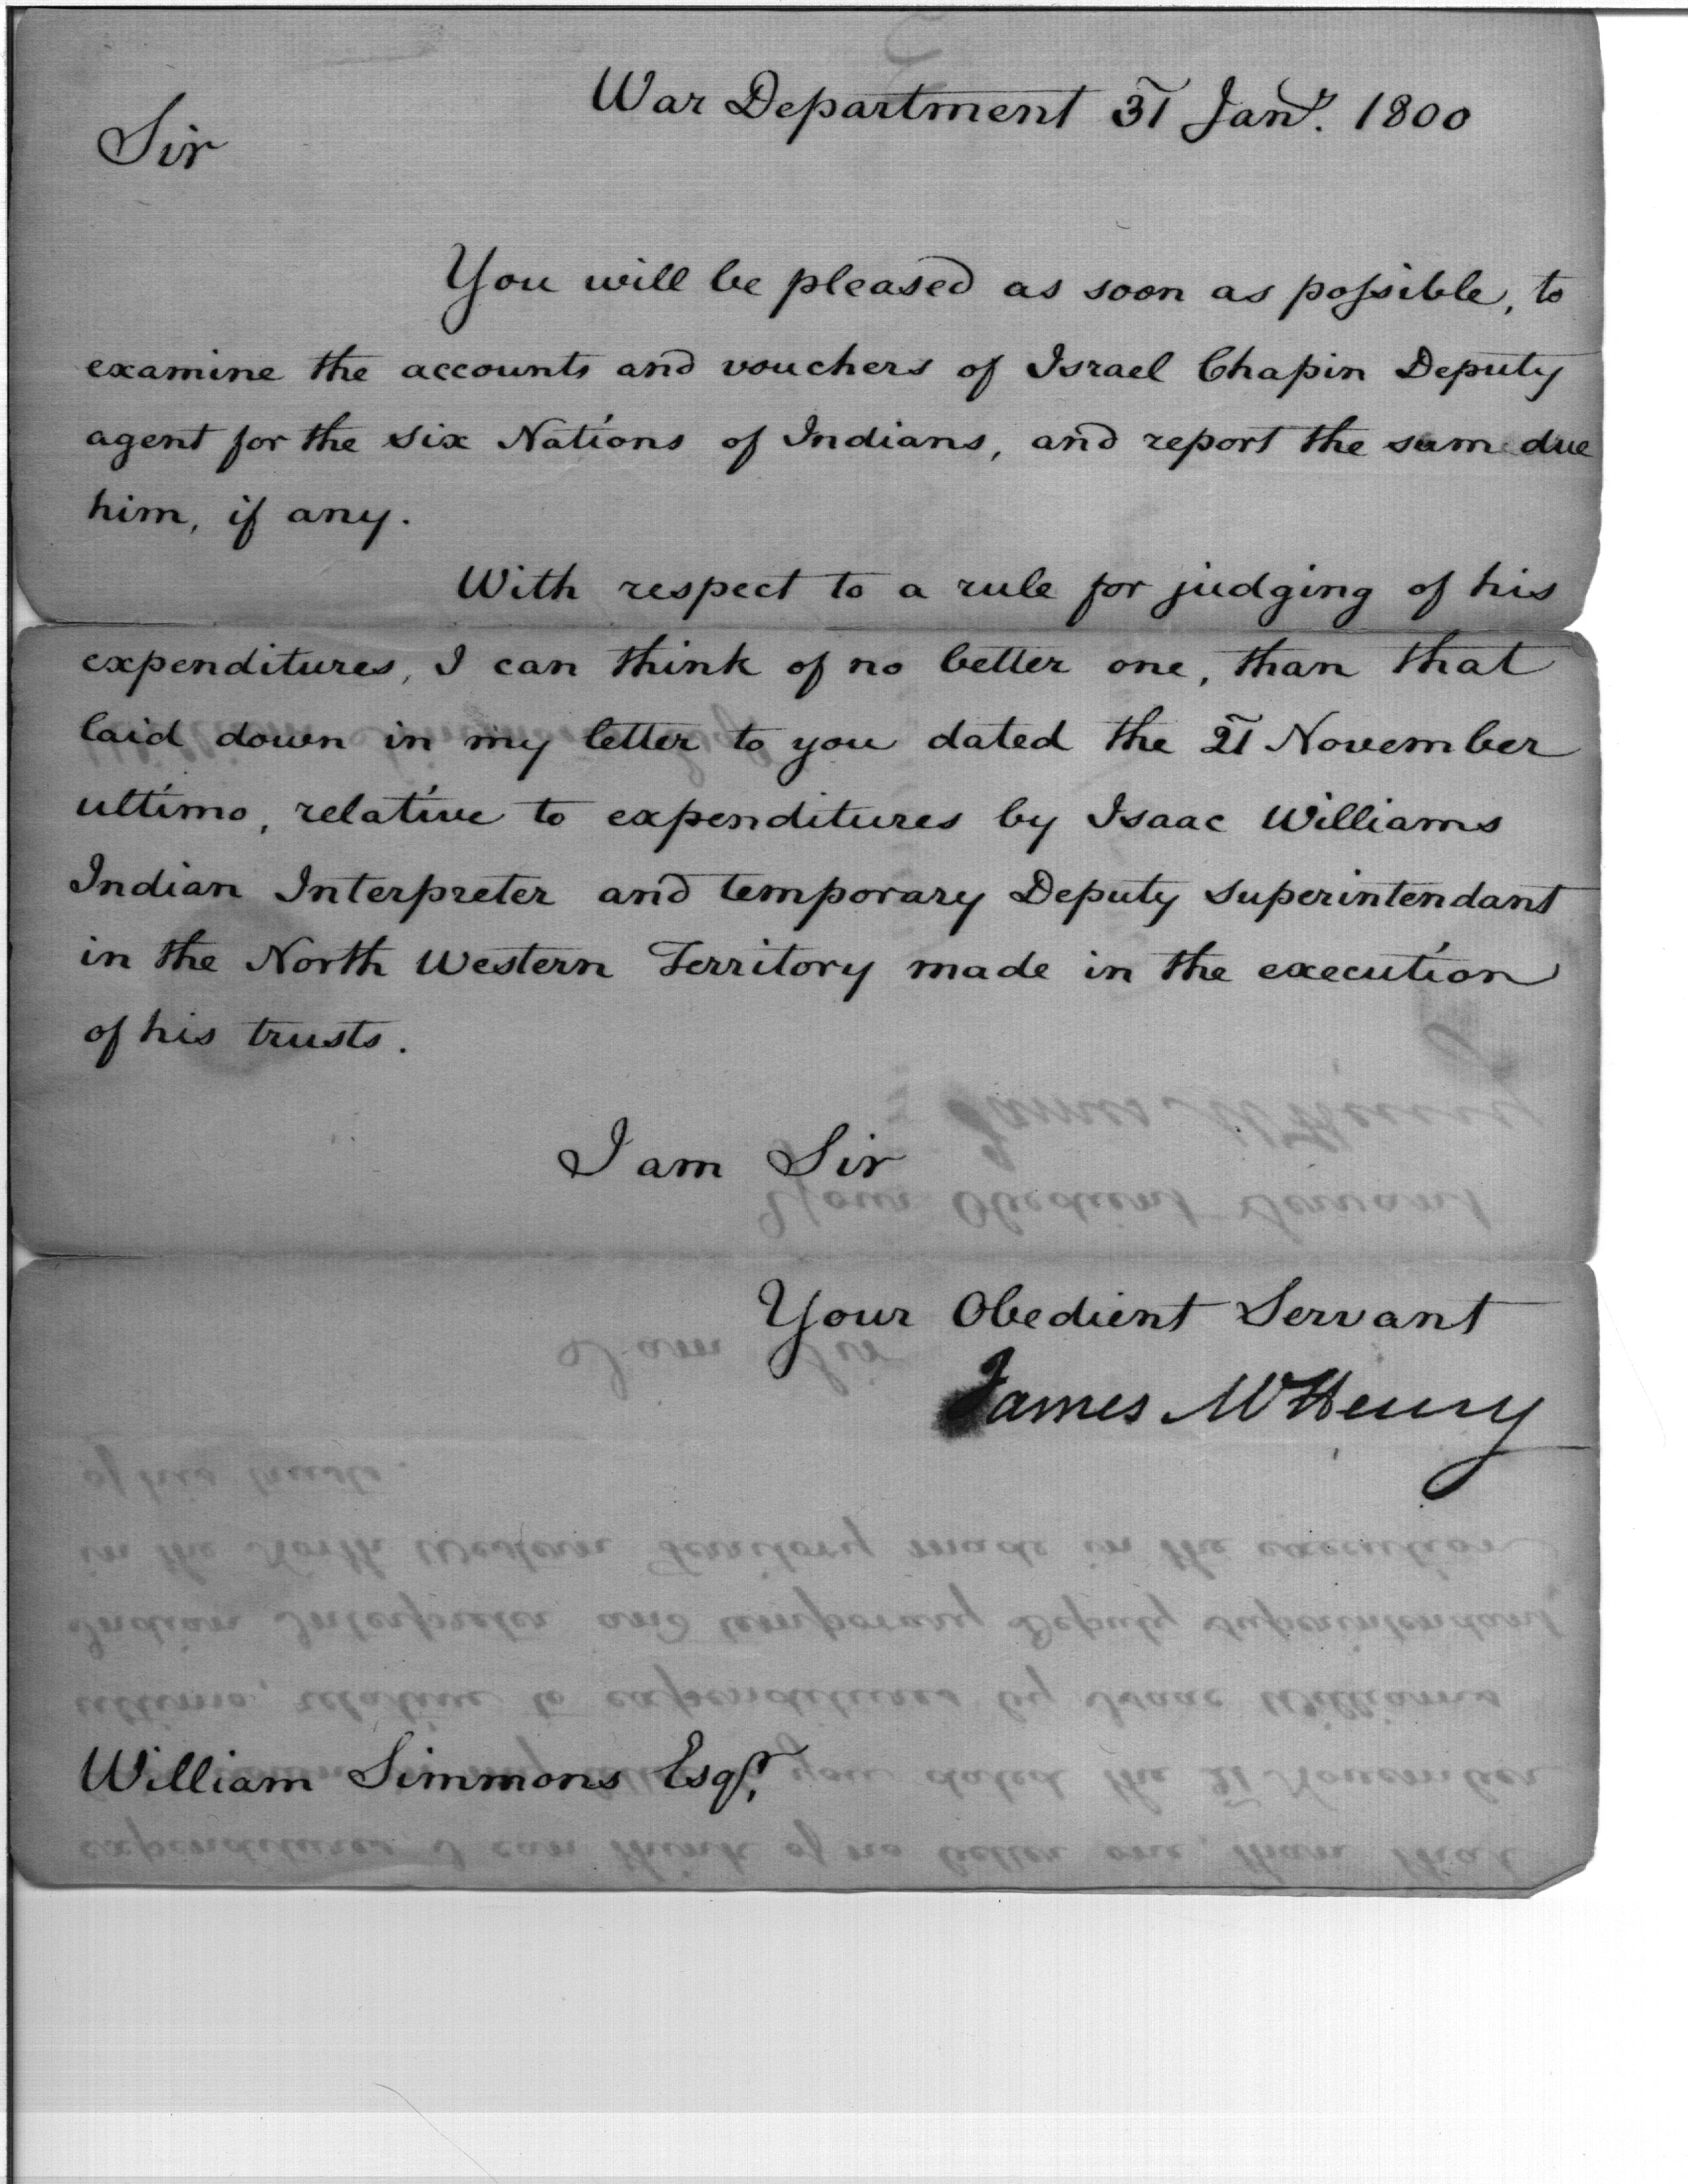 War Department 31 Jany. 1800
Sir
You will be pleased as soon as possible, to
examine the accounts and vouchers of Israel Chapin Deputy
agent for the six Nations of Indians, and report the sum due
him, if any.
With respect to a rule for judging of his
expenditures, I can think of no better one, than that
laid down in my letter to you dated the 21 November
ultimo, relative to expenditures by Isaac Williams
Indian Interpreter and temporary Deputy superintendant
in the North Western Territory made in the execution
of his trusts.
I am Sir
Your Obedient Servant
James McHenry
William Simmons Esqr.